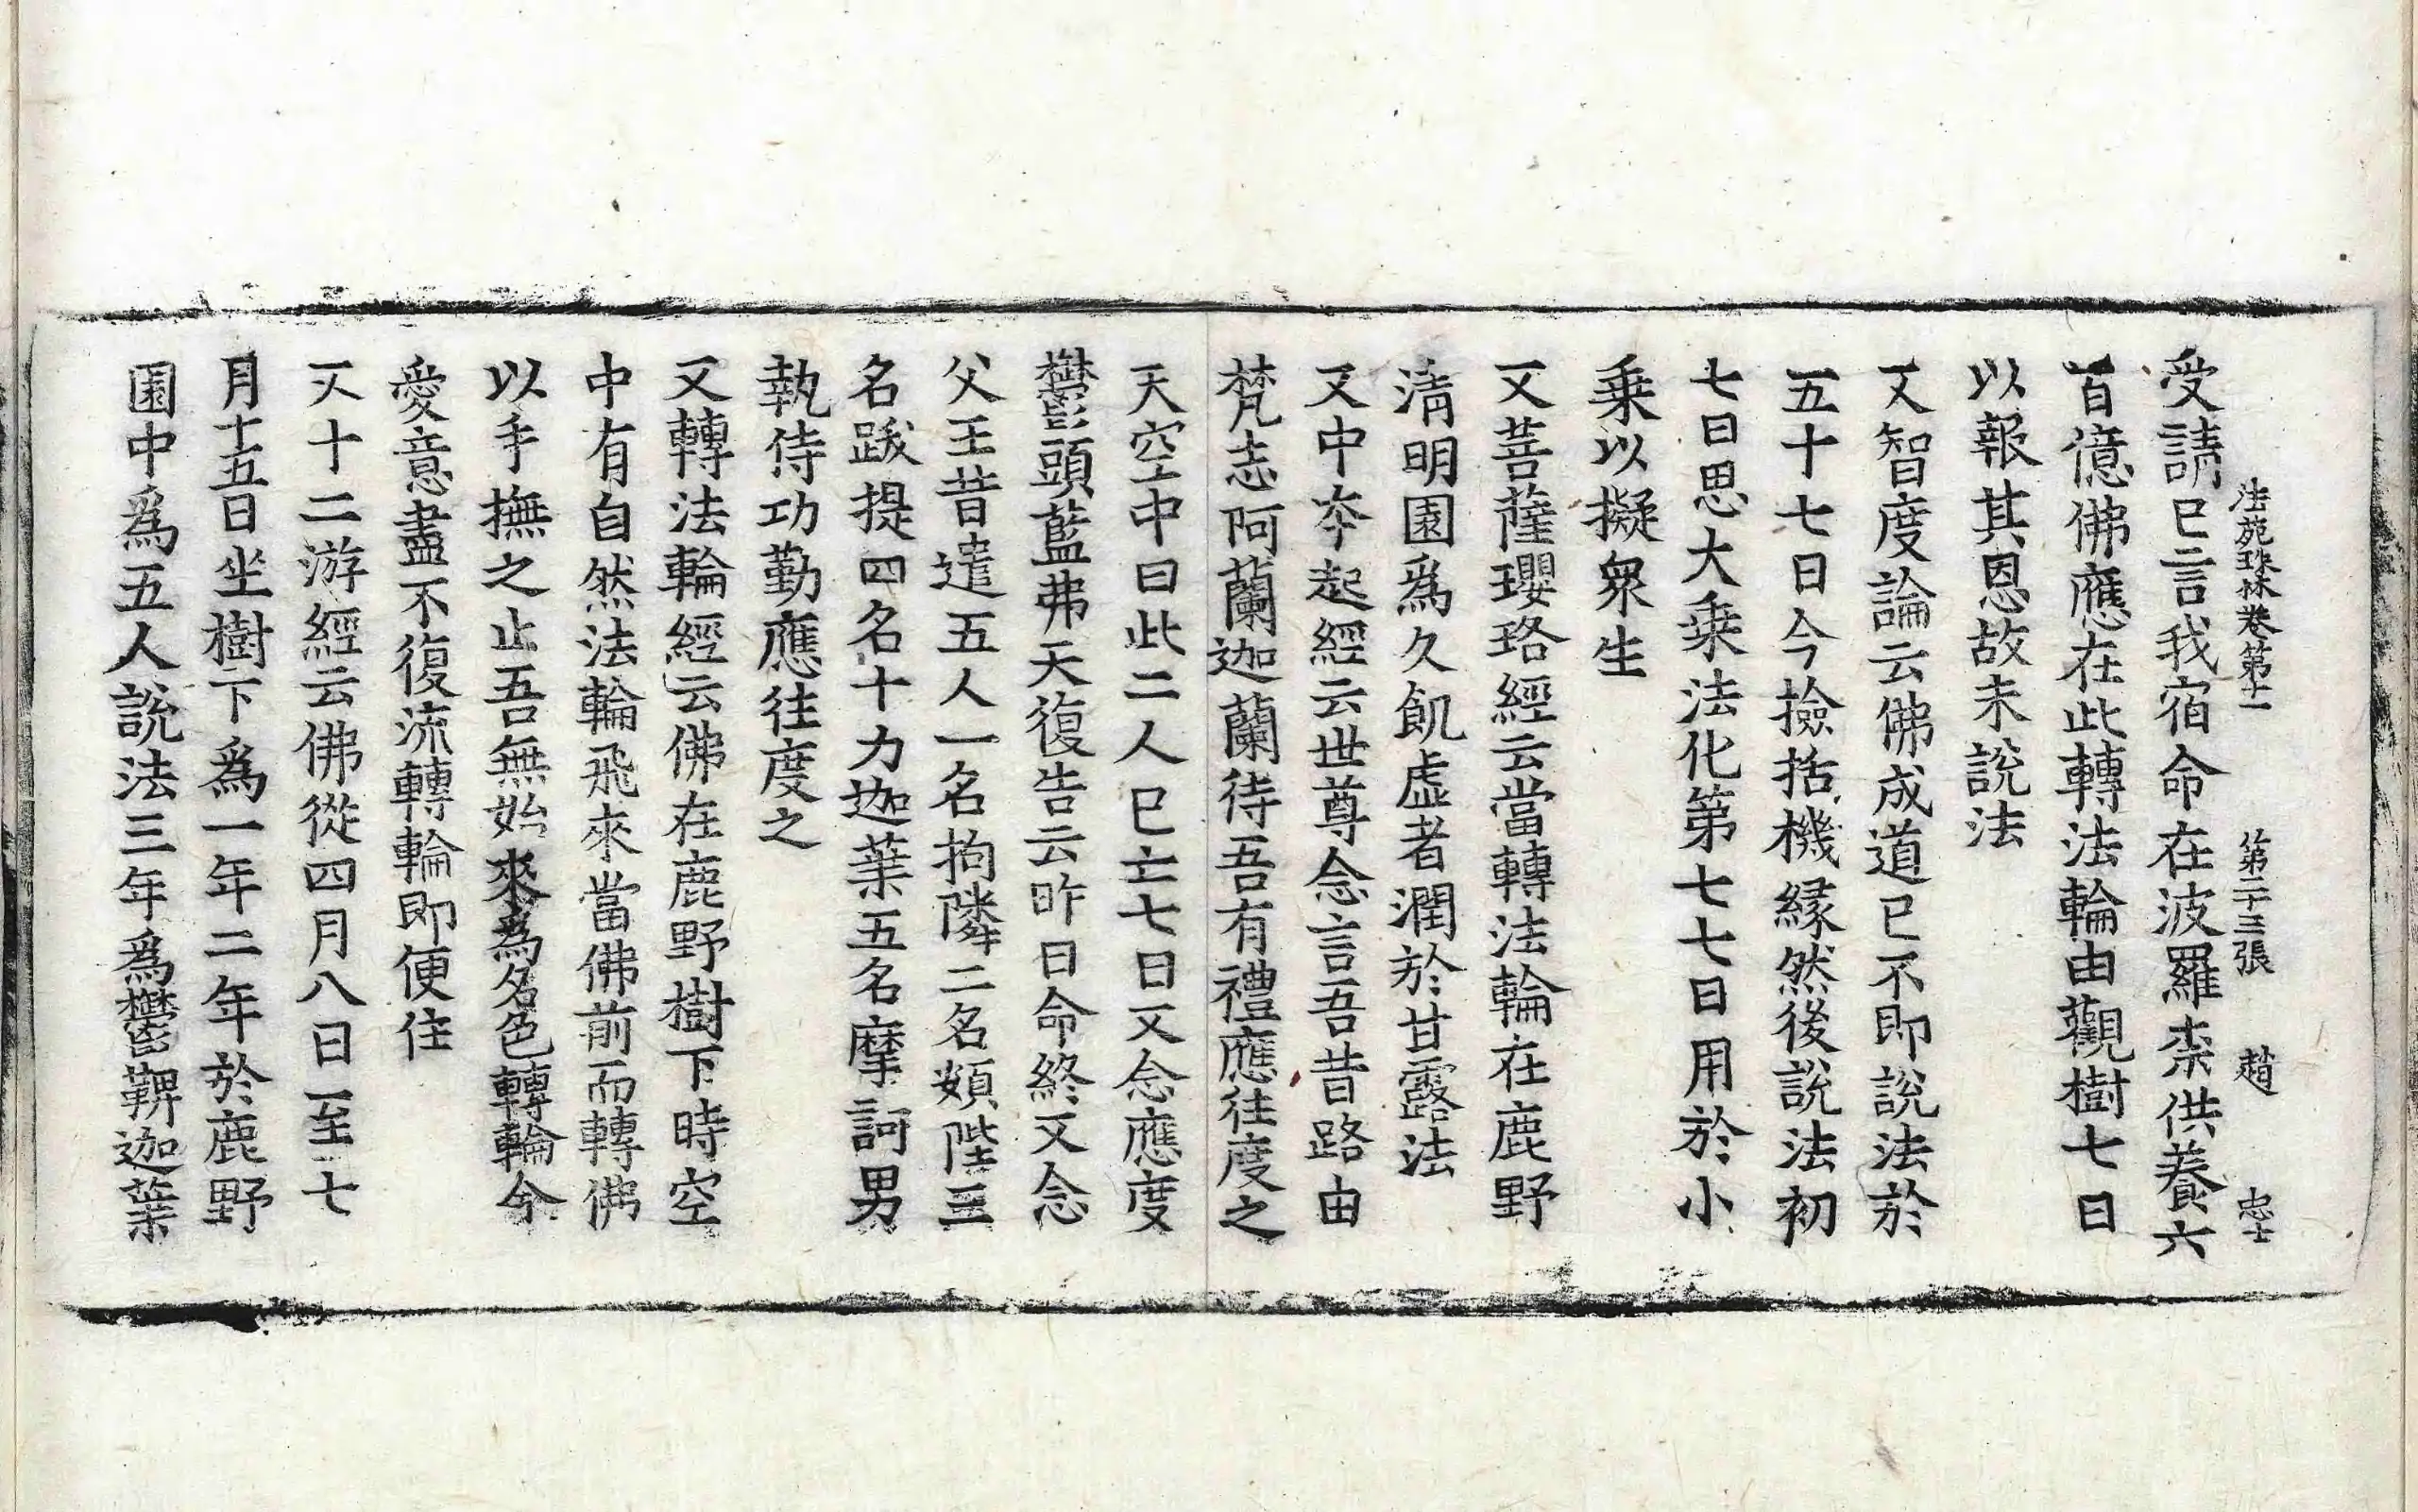 法苑珠林卷第十一 第二十三張 趙 忠士
受請已言我宿命在波羅柰供養六
百億佛應在此轉法輪由觀樹七日
以報其恩故未說法
又智度論云佛成道已不即說法於
五十七日今撿括機緣然後說法初
七日思大乗法化第七七日用於小
乗以擬衆生
又菩薩瓔珞經云當轉法輪在鹿野
清明園爲久飢虛者潤於甘露法
又中夲起經云世尊念言吾昔路由
梵志阿蘭迦蘭待吾有禮應往度之
天空中曰此二人已亡七日又念應度
鬱頭藍弗天復告云昨日命終又念
父王昔遣五人一名拘隣二名頞陛三
名跋提四名十力迦葉五名摩訶男
執侍功勤應往度之
又轉法輪經云佛在鹿野樹下時空
中有自然法輪飛來當佛前而轉佛
以手撫之止吾無始來為名色轉輪今
愛意盡不復流轉輪即便住
又十二游經云佛從四月八日至七
月十五日坐樹下爲一年二年於鹿野
園中爲五人說法三年爲鬱鞞迦葉